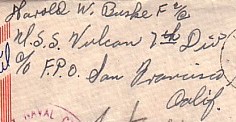 Harold W. Burke F 2/c
U.S.S. Vulcan 2nd Div
c/o F.P.O. San Francisco
Calif.
NAVAL